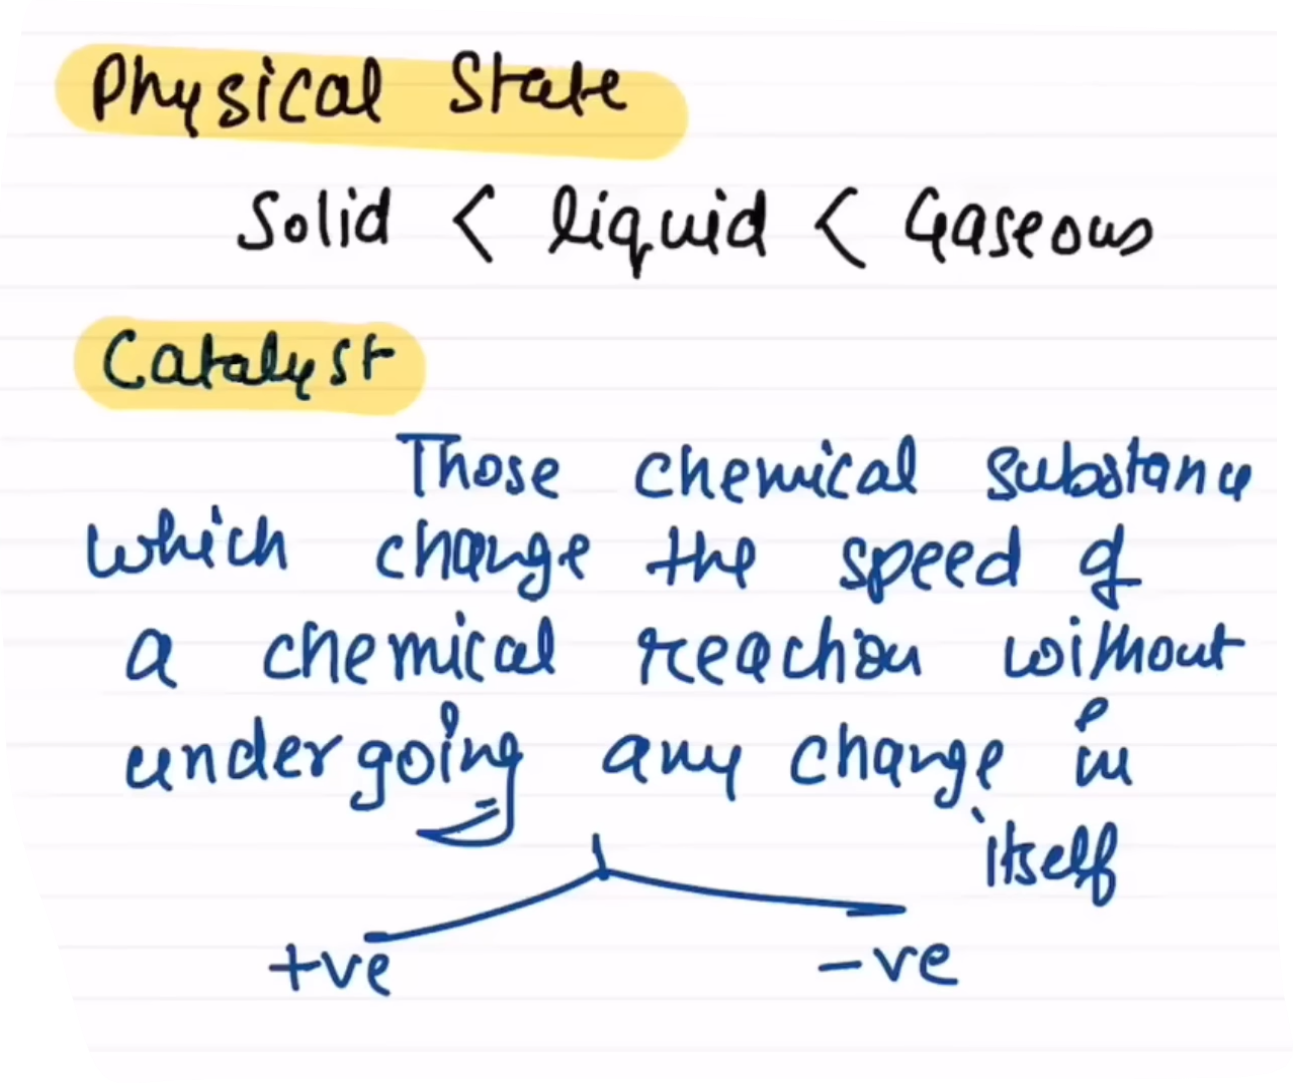 Physical State
Solid < liquid < Gaseous
Catalyst
Those chemical substance
which change the speed of
a chemical reaction without
undergoing any change in
itself
+ve -ve